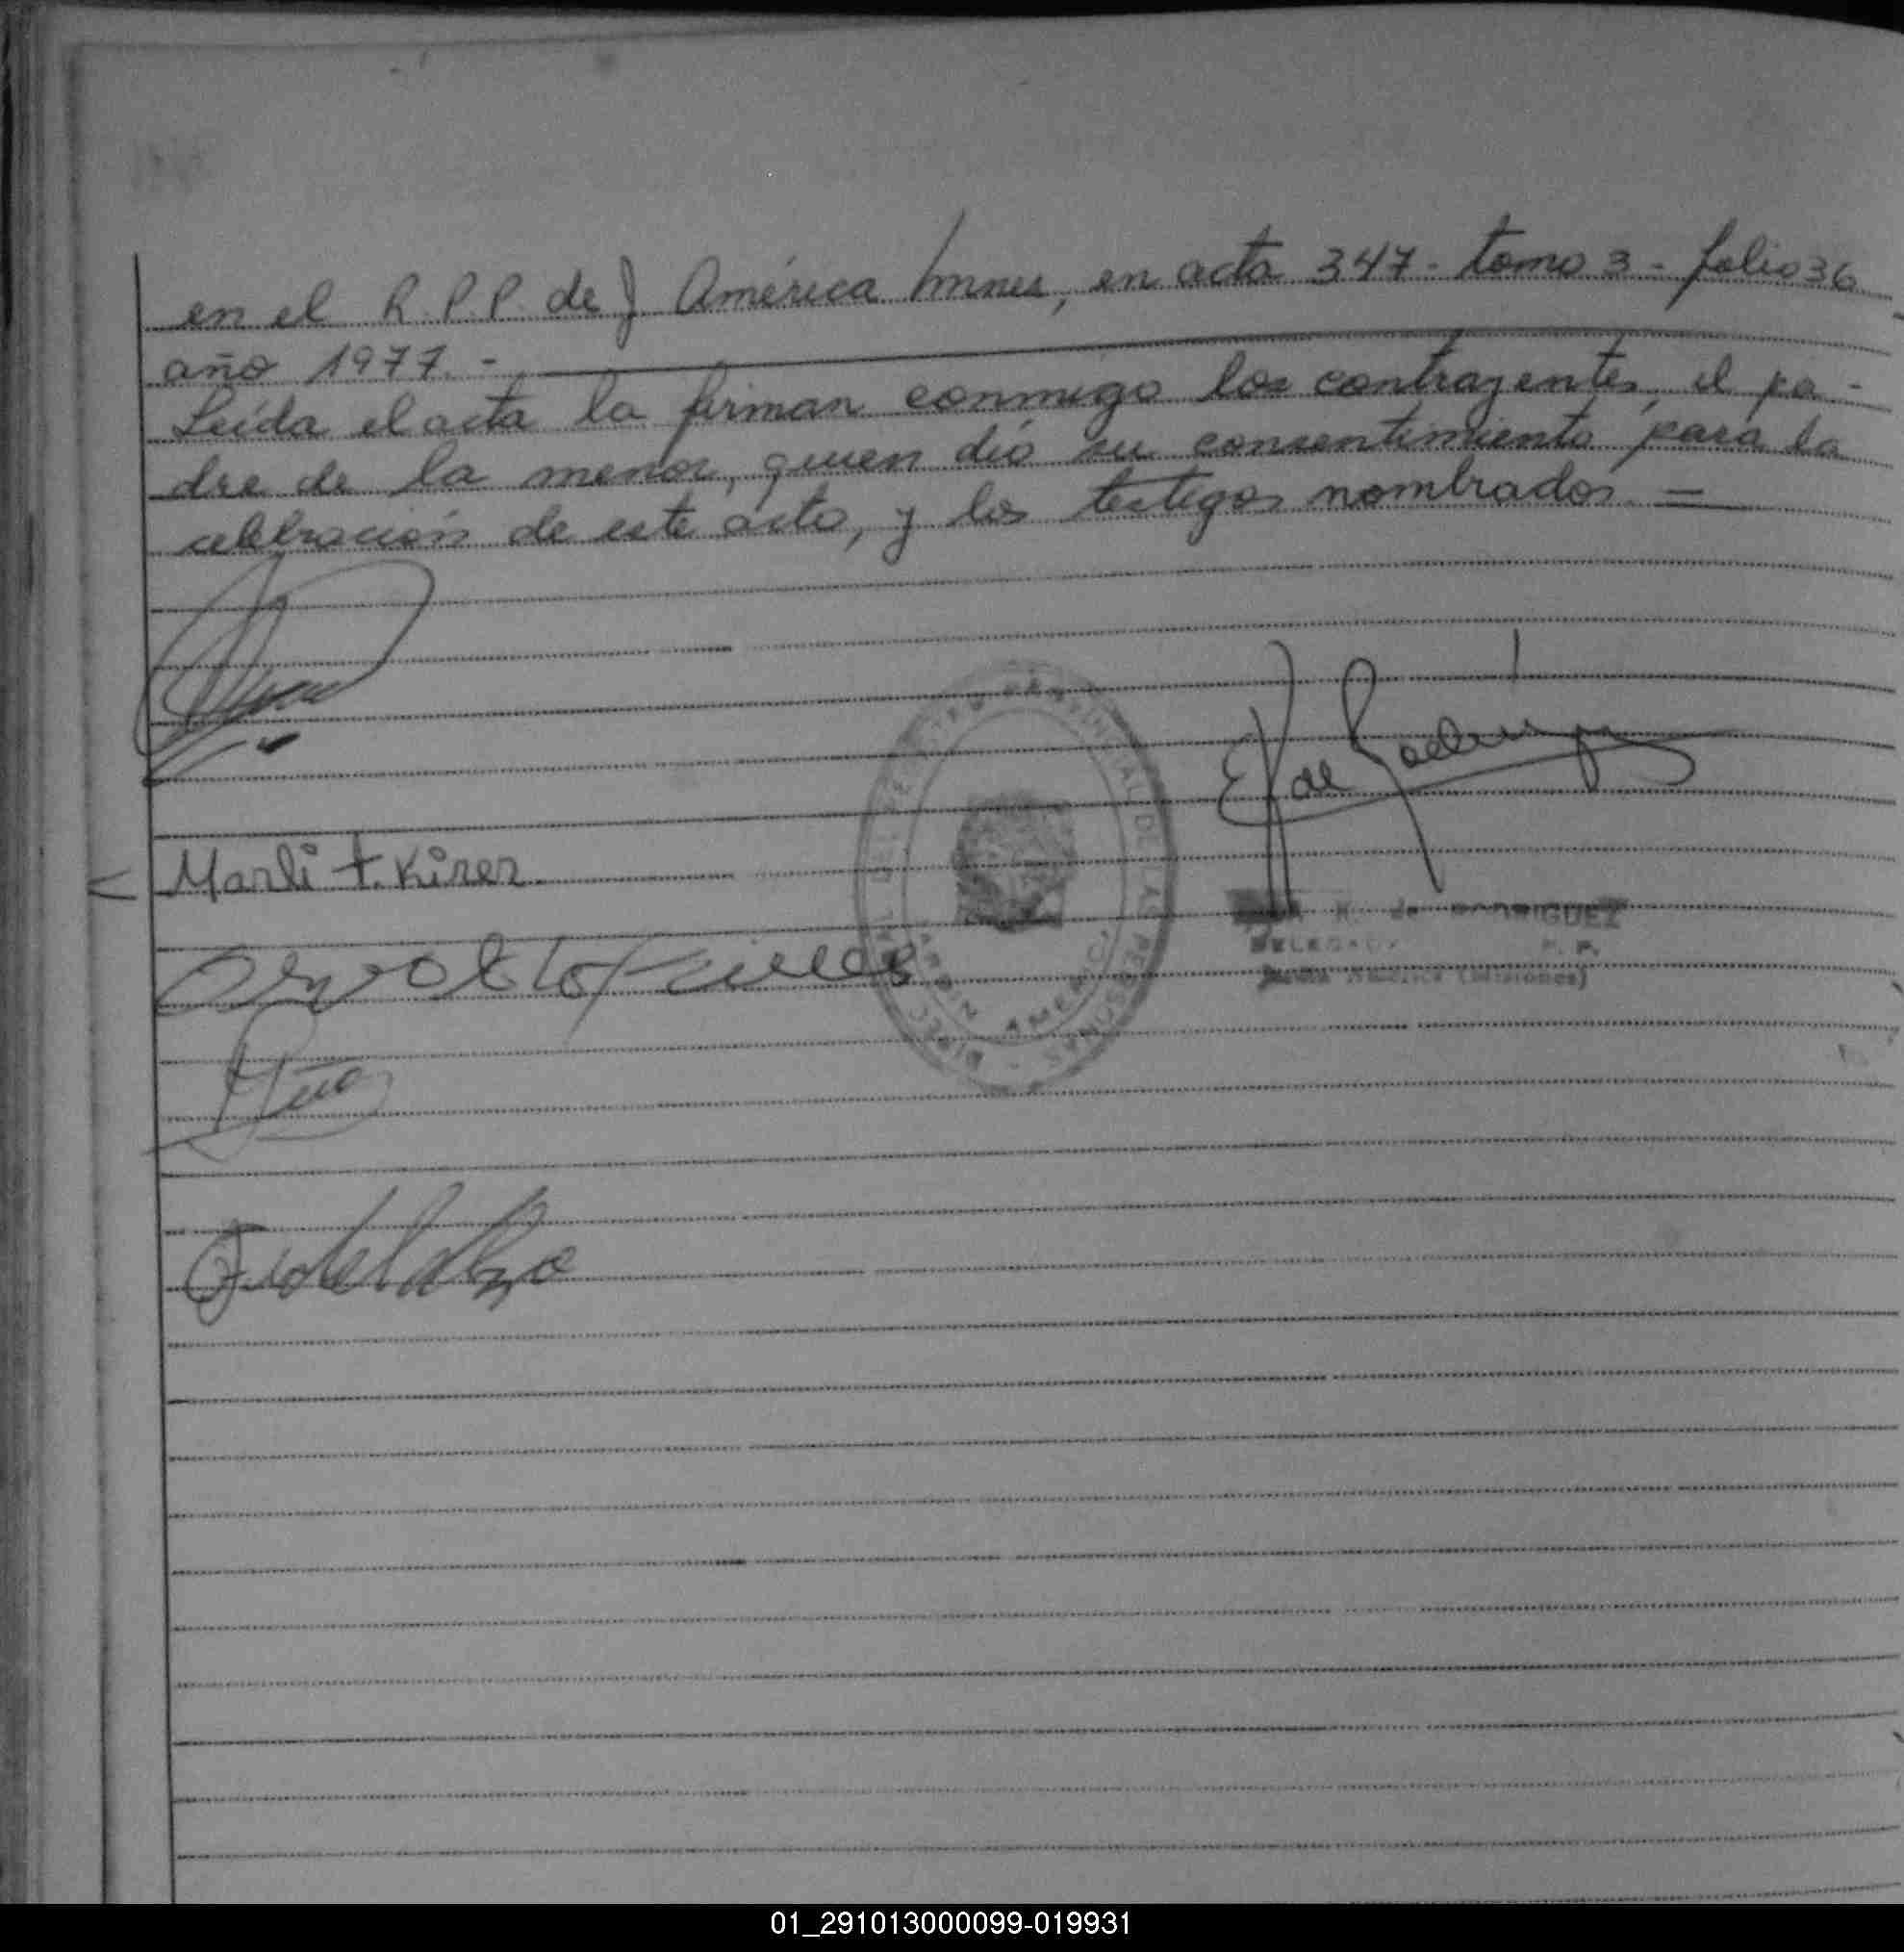 en el R.P.P. de J América Mnes, en acta 347- tomo 3 - folio 36
año 1977.-
Leída el acta la firman conmigo los contrayentes, el pa-
dre de la menor, quien dió su consentimiento para la
celebración de este acto, y los testigos nombrados =
E K de Rodriguez
Marli t. Kirer
K. de RODRIGUEZ
DELEGADA R. P. P.
América (Misiones)
PROVINCIAL DE LAS PERSONAS
JARDIN AMERICA
01_291013000099-019931